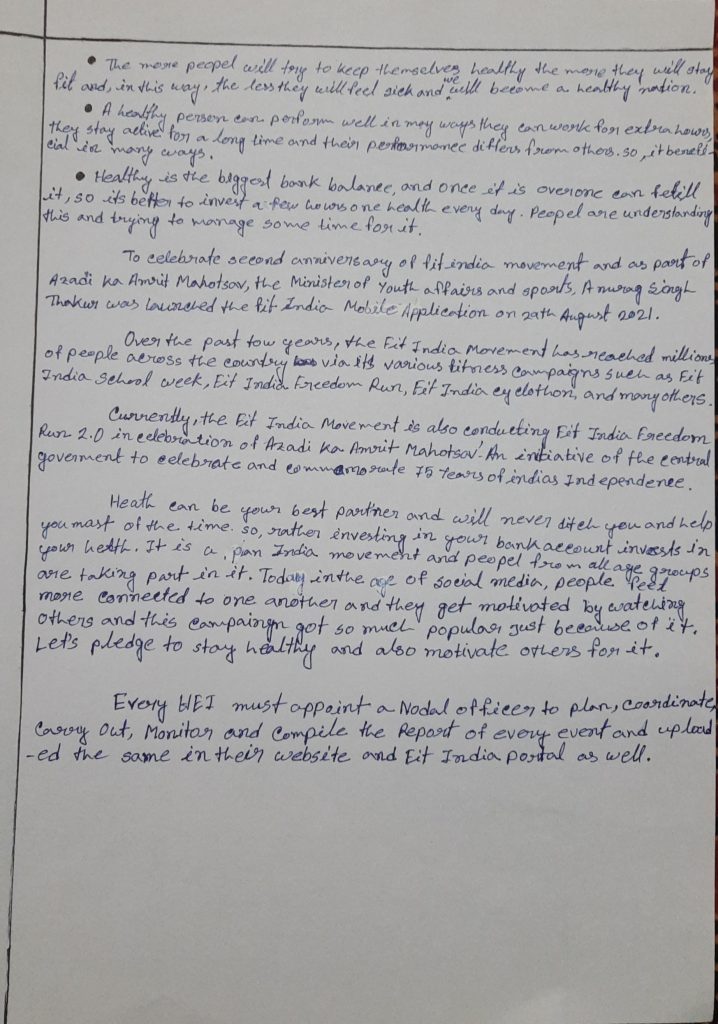 • The more peopel will try to keep themselves healthy the more they will stay
fit and, in this way, the less they will feel sick and we will become a healthy nation.
• A healthy person can perform well in mey ways they can work for extra hours,
they stay active for a long time and their performance differs from others. so, it benefi-
cial in many ways.
• Healthy is the biggest bank balance, and once it is overone can refill
it, so its better to invest a few hours one health every day. Peopel are understanding
this and trying to manage some time for it.
To celebrate second anniversary of fit india movement and as part of
Azadi ka Amrit Mahotsav, the Minister of Youth affairs and sports, Anurag Singh
Thakur was launched the fit India Mobile Application on 29th August 2021.
Over the past tow years, the Fit India Movement has reached millions
of people across the country via its various fitness campaigns such as Fit
India School week, Fit India Freedom Run, Fit India cyclothon, and many others.
Currently, the Fit India Movement is also conducting Fit India Freedom
Run 2.0 in celebration of Azadi Ka Amrit Mahotsav' An initiative of the central
goverment to celebrate and commamorate 75 Years of indias Independence.
Heath can be your best partner and will never ditch you and help
you mast of the time. so, rather investing in your bank account invests in
your helth. It is a pan India movement and peopel from all age groups
are taking part in it. Today in the age of social media, people feel
more connected to one another and they get motivated by watching
others and this campaingn got so much popular just because of it.
Let's pledge to stay healthy and also motivate others for it.
Every HEI must appoint a Nodal officer to plan, coordinate,
Carry Out, Monitor and Compile the Report of every event and upload
-ed the same in their website and Fit India portal as well.